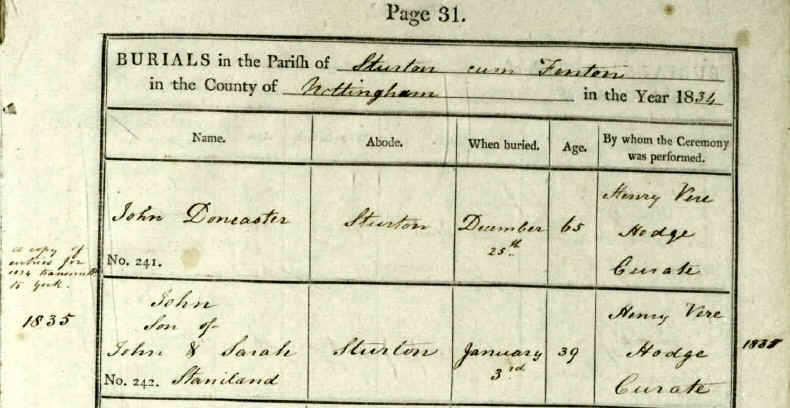 Page 31.
BURIALS in the Parish of Sturton cum Fenton
in the County of Nottingham in the Year 1834
Name. Abode. When buried. Age. By whom the Ceremony was performed.
John Doncaster Sturton December 25th 65 Henry Vere Hodge Curate
No. 241.
a copy of
entries for
1834 transmitted
to York.
1835
John
Son of
John & Sarah Sturton January 3rd 39 Henry Vere Hodge Curate
No. 242. Staniland
1835